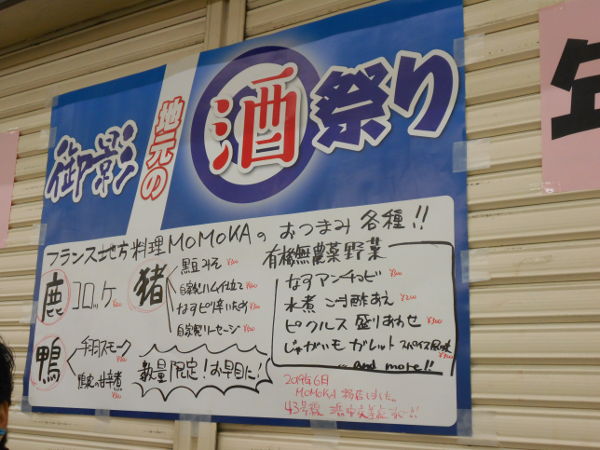 御影
地元の
酒祭り
フランス地方料理MOMOKAの おつまみ各種!!
鹿 コロッケ
猪
黒豆みそ
自家製ハム仕立て
なすピリ辛いため
自家製ソーセージ
鴨
スモーク
甘辛煮
数量限定!お早目に!
有機無農薬野菜
なすアンチョビ
水煮 ごま酢あえ
ピクルス 盛りあわせ
じゃがいも ガレット スパイス風味
and more!!
2019年6月
MOMOKA 移店しました。
43号線
年